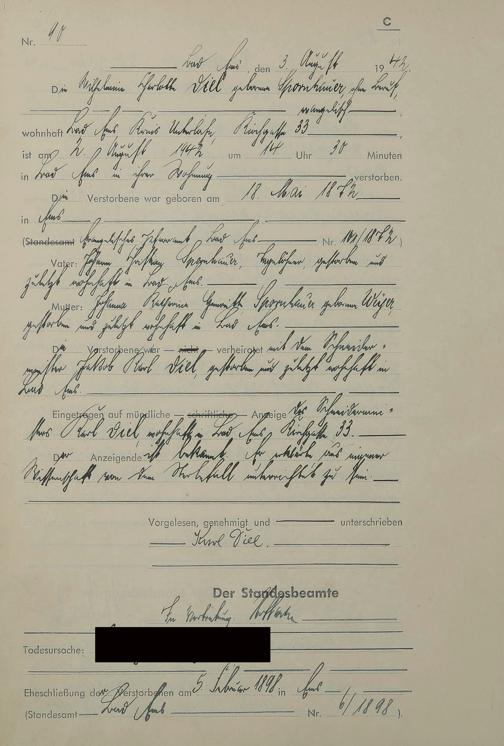 C
Nr. 90
Bad Ems, den 3. August 1942
Die Wilhelmine Charlotte Diel geborene Spornhauer, ohne Beruf,
evangelisch
wohnhaft Bad Ems Kreis Unterlahn, Kirchgasse 33
ist am 2. August 1942 um 14 Uhr 30 Minuten
in Bad Ems in ihrer Wohnung verstorben.
Die Verstorbene war geboren am 18. Mai 1872
in Ems
(Standesamt Evangelisches Pfarramt Bad Ems Nr. /1872)
Vater: Johann Spornhauer, Tagelöhner gestorben und
zuletzt wohnhaft in Bad Ems.
Mutter: Johanna Katharina Spornhauer geborene
gestorben und zuletzt wohnhaft in Bad Ems.
Die Verstorbene war nicht verheiratet mit dem Schneider-
meister Karl Diel, gestorben und zuletzt wohnhaft in
Bad Ems.
Eingetragen auf mündliche schriftliche Anzeige des Schneidermei-
sters Karl Diel, wohnhaft in Bad Ems Kirchgasse 33.
Der Anzeigende ist bekannt. Er erklärte aus eigener
Wissenschaft von dem Sterbefall unterrichtet zu sein
Vorgelesen, genehmigt und unterschrieben
Karl Diel.
Der Standesbeamte
In Vertretung
Todesursache:
Eheschließung der Verstorbenen am 5. Februar 1898 in Ems
(Standesamt Bad Ems Nr. 6/1898).